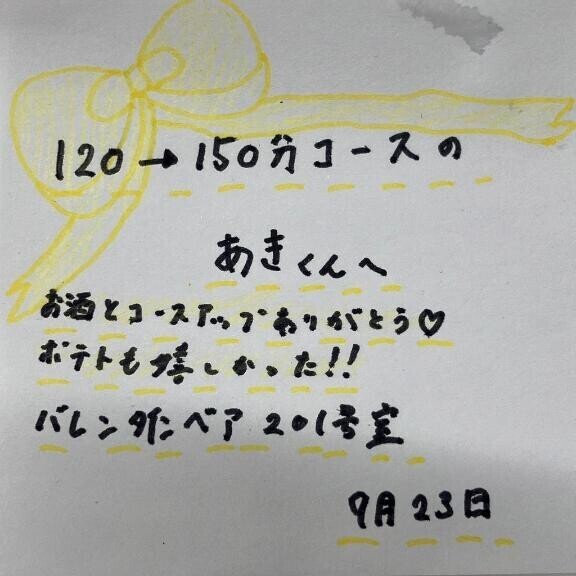 120→150分コースの
あきくんへ
お酒とコースアップありがとう♡
ポテトも嬉しかった!!
バレンタインベア201号室
9月23日